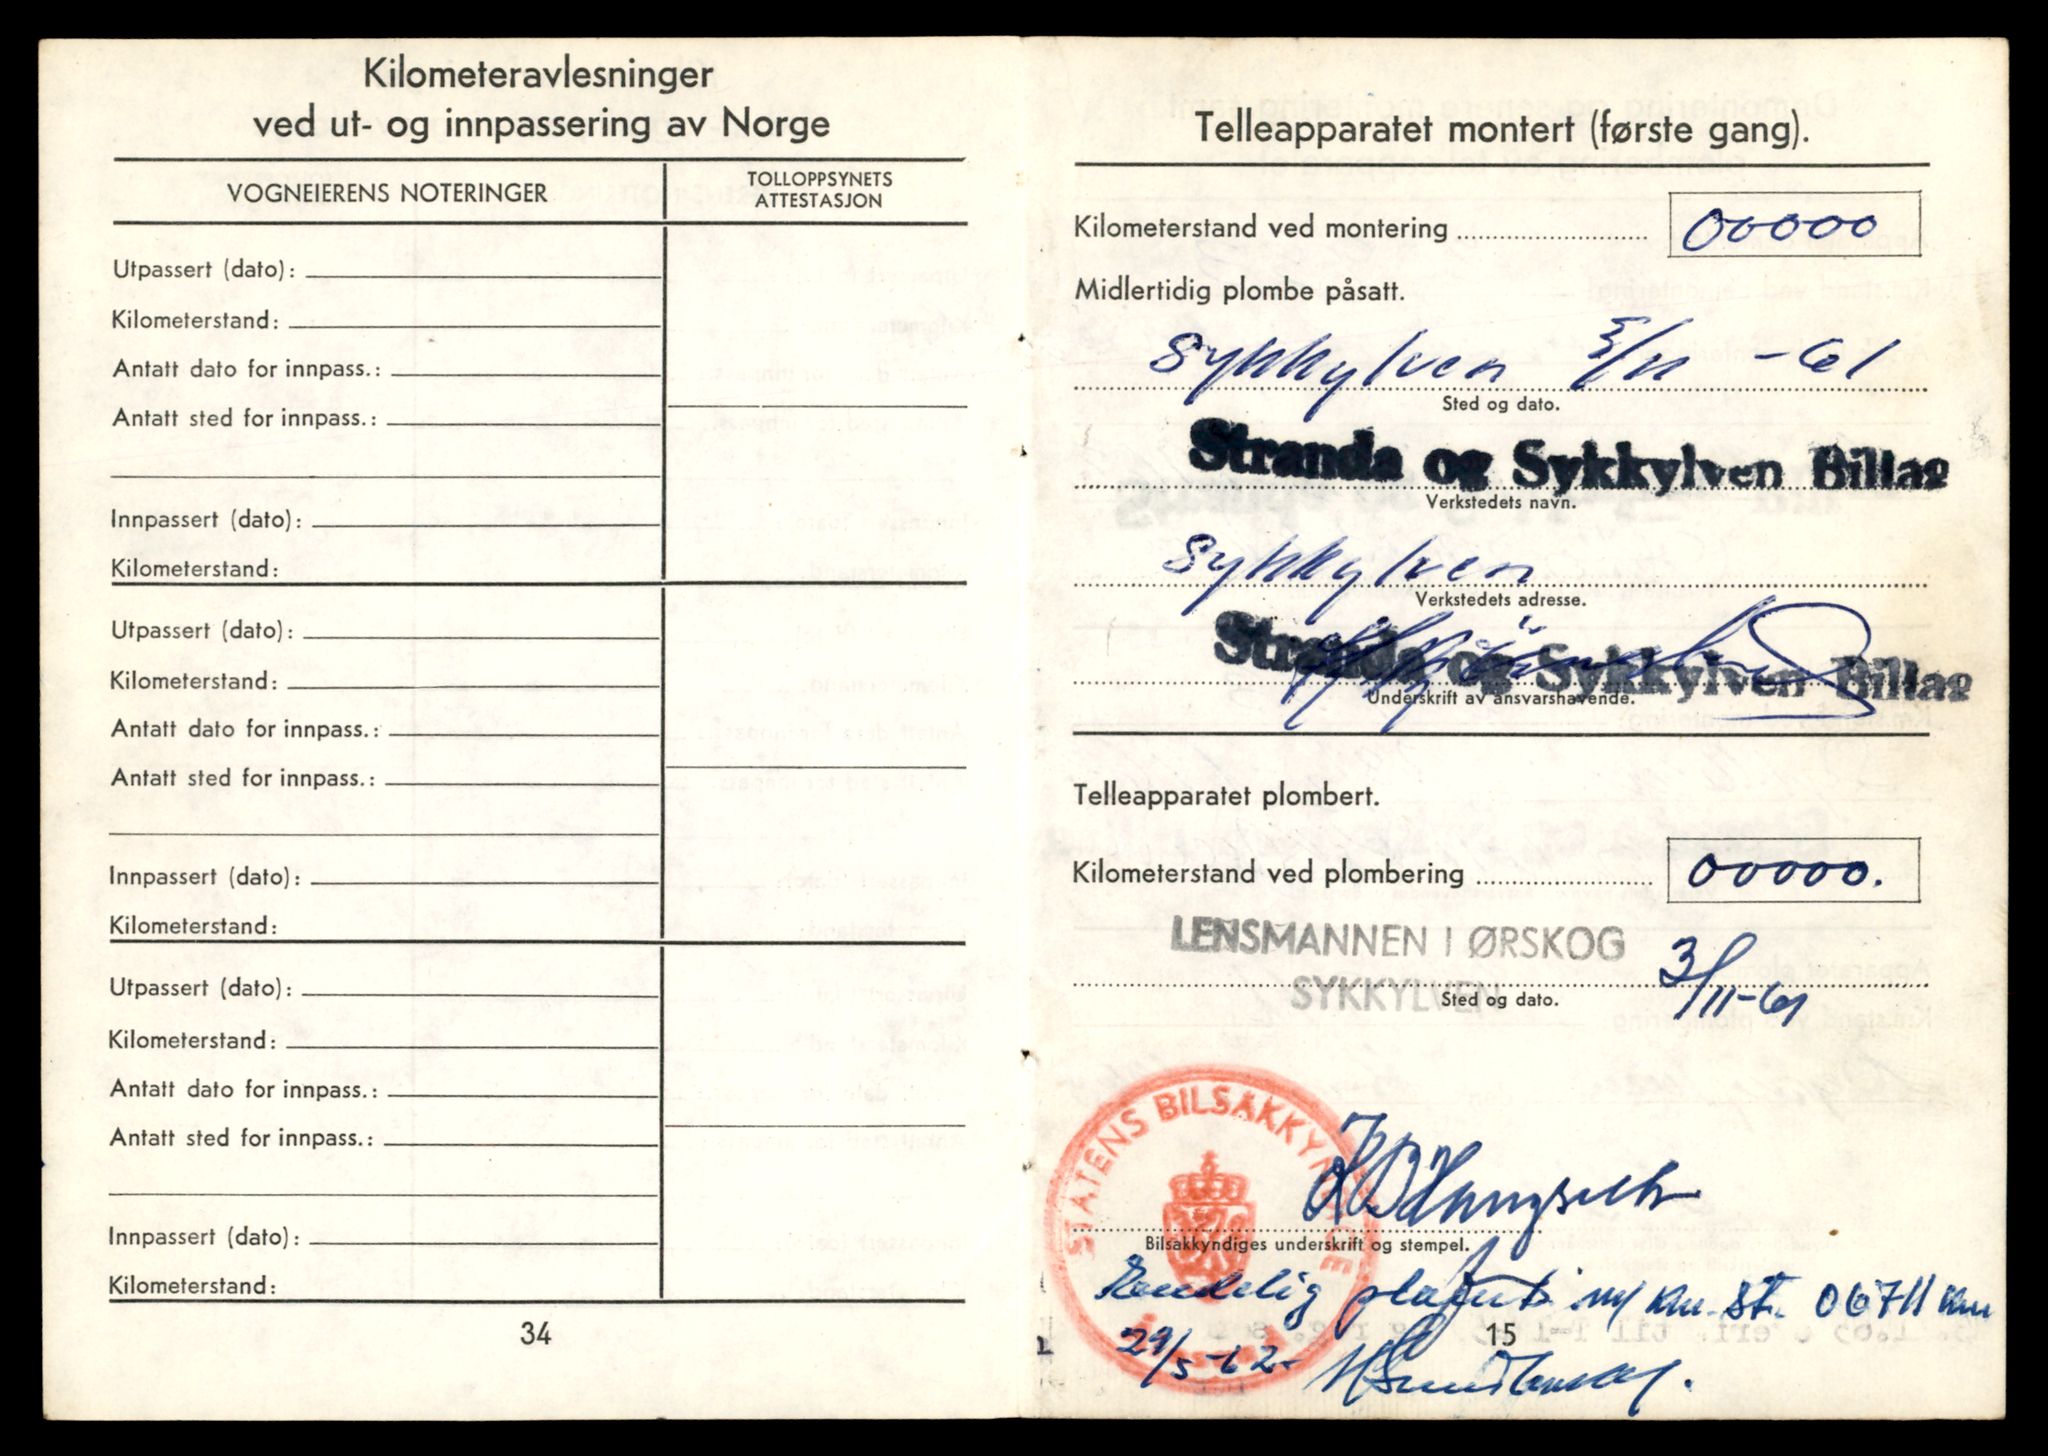 Kilometeravlesninger
ved ut- og innpassering av Norge
VOGNEIERENS NOTERINGER
TOLLOPPSYNETS
ATTESTASJON
Utpassert (dato):
Kilometerstand:
Antatt dato for innpass.:
Antatt sted for innpass.:
Innpassert (dato):
Kilometerstand:
Utpassert (dato):
Kilometerstand:
Antatt dato for innpass.:
Antatt sted for innpass.:
Innpassert (dato):
Kilometerstand:
Utpassert (dato):
Kilometerstand:
Antatt dato for innpass.:
Antatt sted for innpass.:
Innpassert (dato):
Kilometerstand:
34
Telleapparatet montert (første gang).
Kilometerstand ved montering 00000
Midlertidig plombe påsatt.
Sykkylven 3/11 -61
Sted og dato.
Stranda og Sykkylven Billag
Verkstedets navn.
Sykkylven
Verkstedets adresse.
Stranda og Sykkylven Billag
Underskrift av ansvarshavende.
Telleapparatet plombert.
Kilometerstand ved plombering 00000.
LENSMANNEN I ØRSKOG
SYKKYLVEN 3/11-61
Sted og dato.
STATENS BILSAKKYNDIGE
Bilsakkyndiges underskrift og stempel.
Endelig m/ km. st. 06711 km
29/5-62-
15